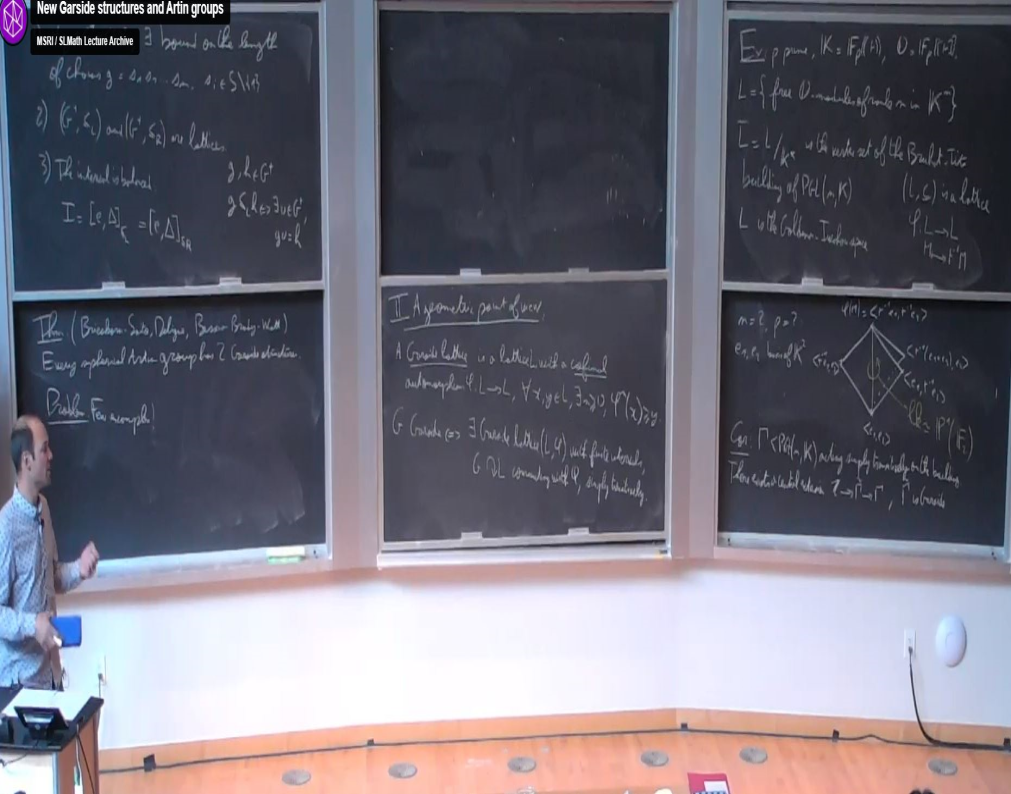 New Garside structures and Artin groups
MSRI / SLMath Lecture Archive
∃ bound on the length
of chains g = s₁s₂ ... sₘ, sᵢ ∈ S\{1}
2) (G⁺, ≤_L) and (G⁺, ≤_R) are lattices
3) The interval is balanced
I = [e,Δ]_L = [e,Δ]_R
g, h ∈ G⁺
g ≤_L h ⇔ ∃ u ∈ G⁺,
gu = h
Thm (Brieskorn-Saito, Deligne, Bessis, Brady-Watt)
Every spherical Artin group has 2 Garside structures.
Problem Few examples!
II A geometric point of view.
A Garside lattice is a lattice L with a cofinal
automorphism φ: L → L, ∀ x, y ∈ L, ∃ n ≥ 0, φⁿ(x) ≥ y.
G Garside ⇔ ∃ Garside lattice (L, φ) with finite intervals,
G ↷ L commuting with φ, simply transitively.
Ex: p prime, K = F_p((t)), O = F_p[[t]].
L = {free O-modules of rank n in Kⁿ}
L̄ = L/K* is the vertex set of the Bruhat-Tits
building of PGL(n, K)
(L, ⊆) is a lattice
L is the Goldman-Iwahori space
φ: L → L
M ↦ t⁻¹M
n = 2, p = 2
e₁, e₂ basis of K²
φ(M) = <t⁻¹e₁, t⁻¹e₂>
<t⁻¹e₁, e₂>
<t⁻¹(e₁+e₂), e₂>
<e₁, t⁻¹e₂>
<e₁, e₂>
P¹(F₂)
Cor: Γ < PGL(n, K) acting simply transitively on the building
There exists a central extension Z → Γ̂ → Γ, Γ̂ is Garside